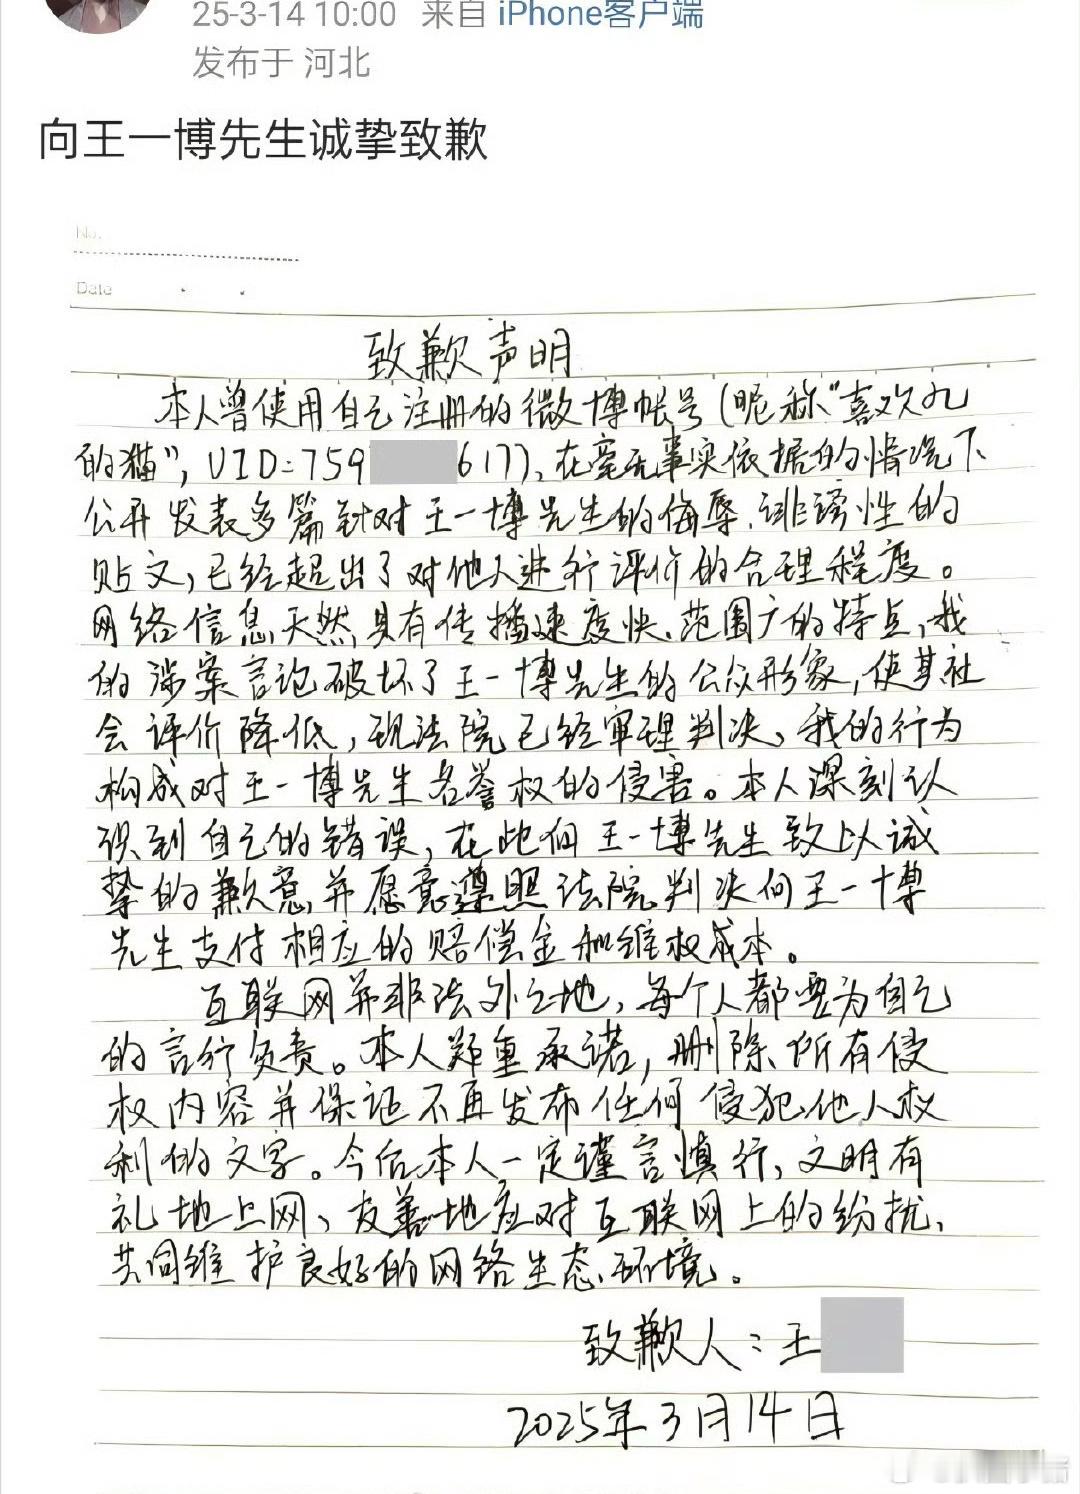 25-3-14 10:00 来自 iPhone客户端
发布于 河北
向王一博先生诚挚致歉
No.
Date
致歉声明
本人曾使用自己注册的微博帐号(昵称“喜欢九
的猫”, UID=759 617), 在毫无事实依据的情况下
公开发表多篇针对王一博先生的侮辱、诽谤性的
贴文,已经超出了对他人进行评价的合理程度。
网络信息天然具有传播速度快、范围广的特点,我
的涉案言论破坏了王一博先生的公众形象,使其社
会评价降低,现法院已经审理判决、我的行为
构成对王一博先生名誉权的侵害。本人深刻认
识到自己的错误,在此向王一博先生致以诚
挚的歉意,并愿意遵照法院判决向王一博
先生支付相应的赔偿金和维权成本。
互联网并非法外之地,每个人都要为自己
的言行负责。本人郑重承诺,删除所有侵
权内容并保证不再发布任何侵犯他人权
利的文字。今后本人一定谨言慎行,文明有
礼地上网、友善地应对互联网上的纷扰、
共同维护良好的网络生态环境。
致歉人:王
2025年3月14日